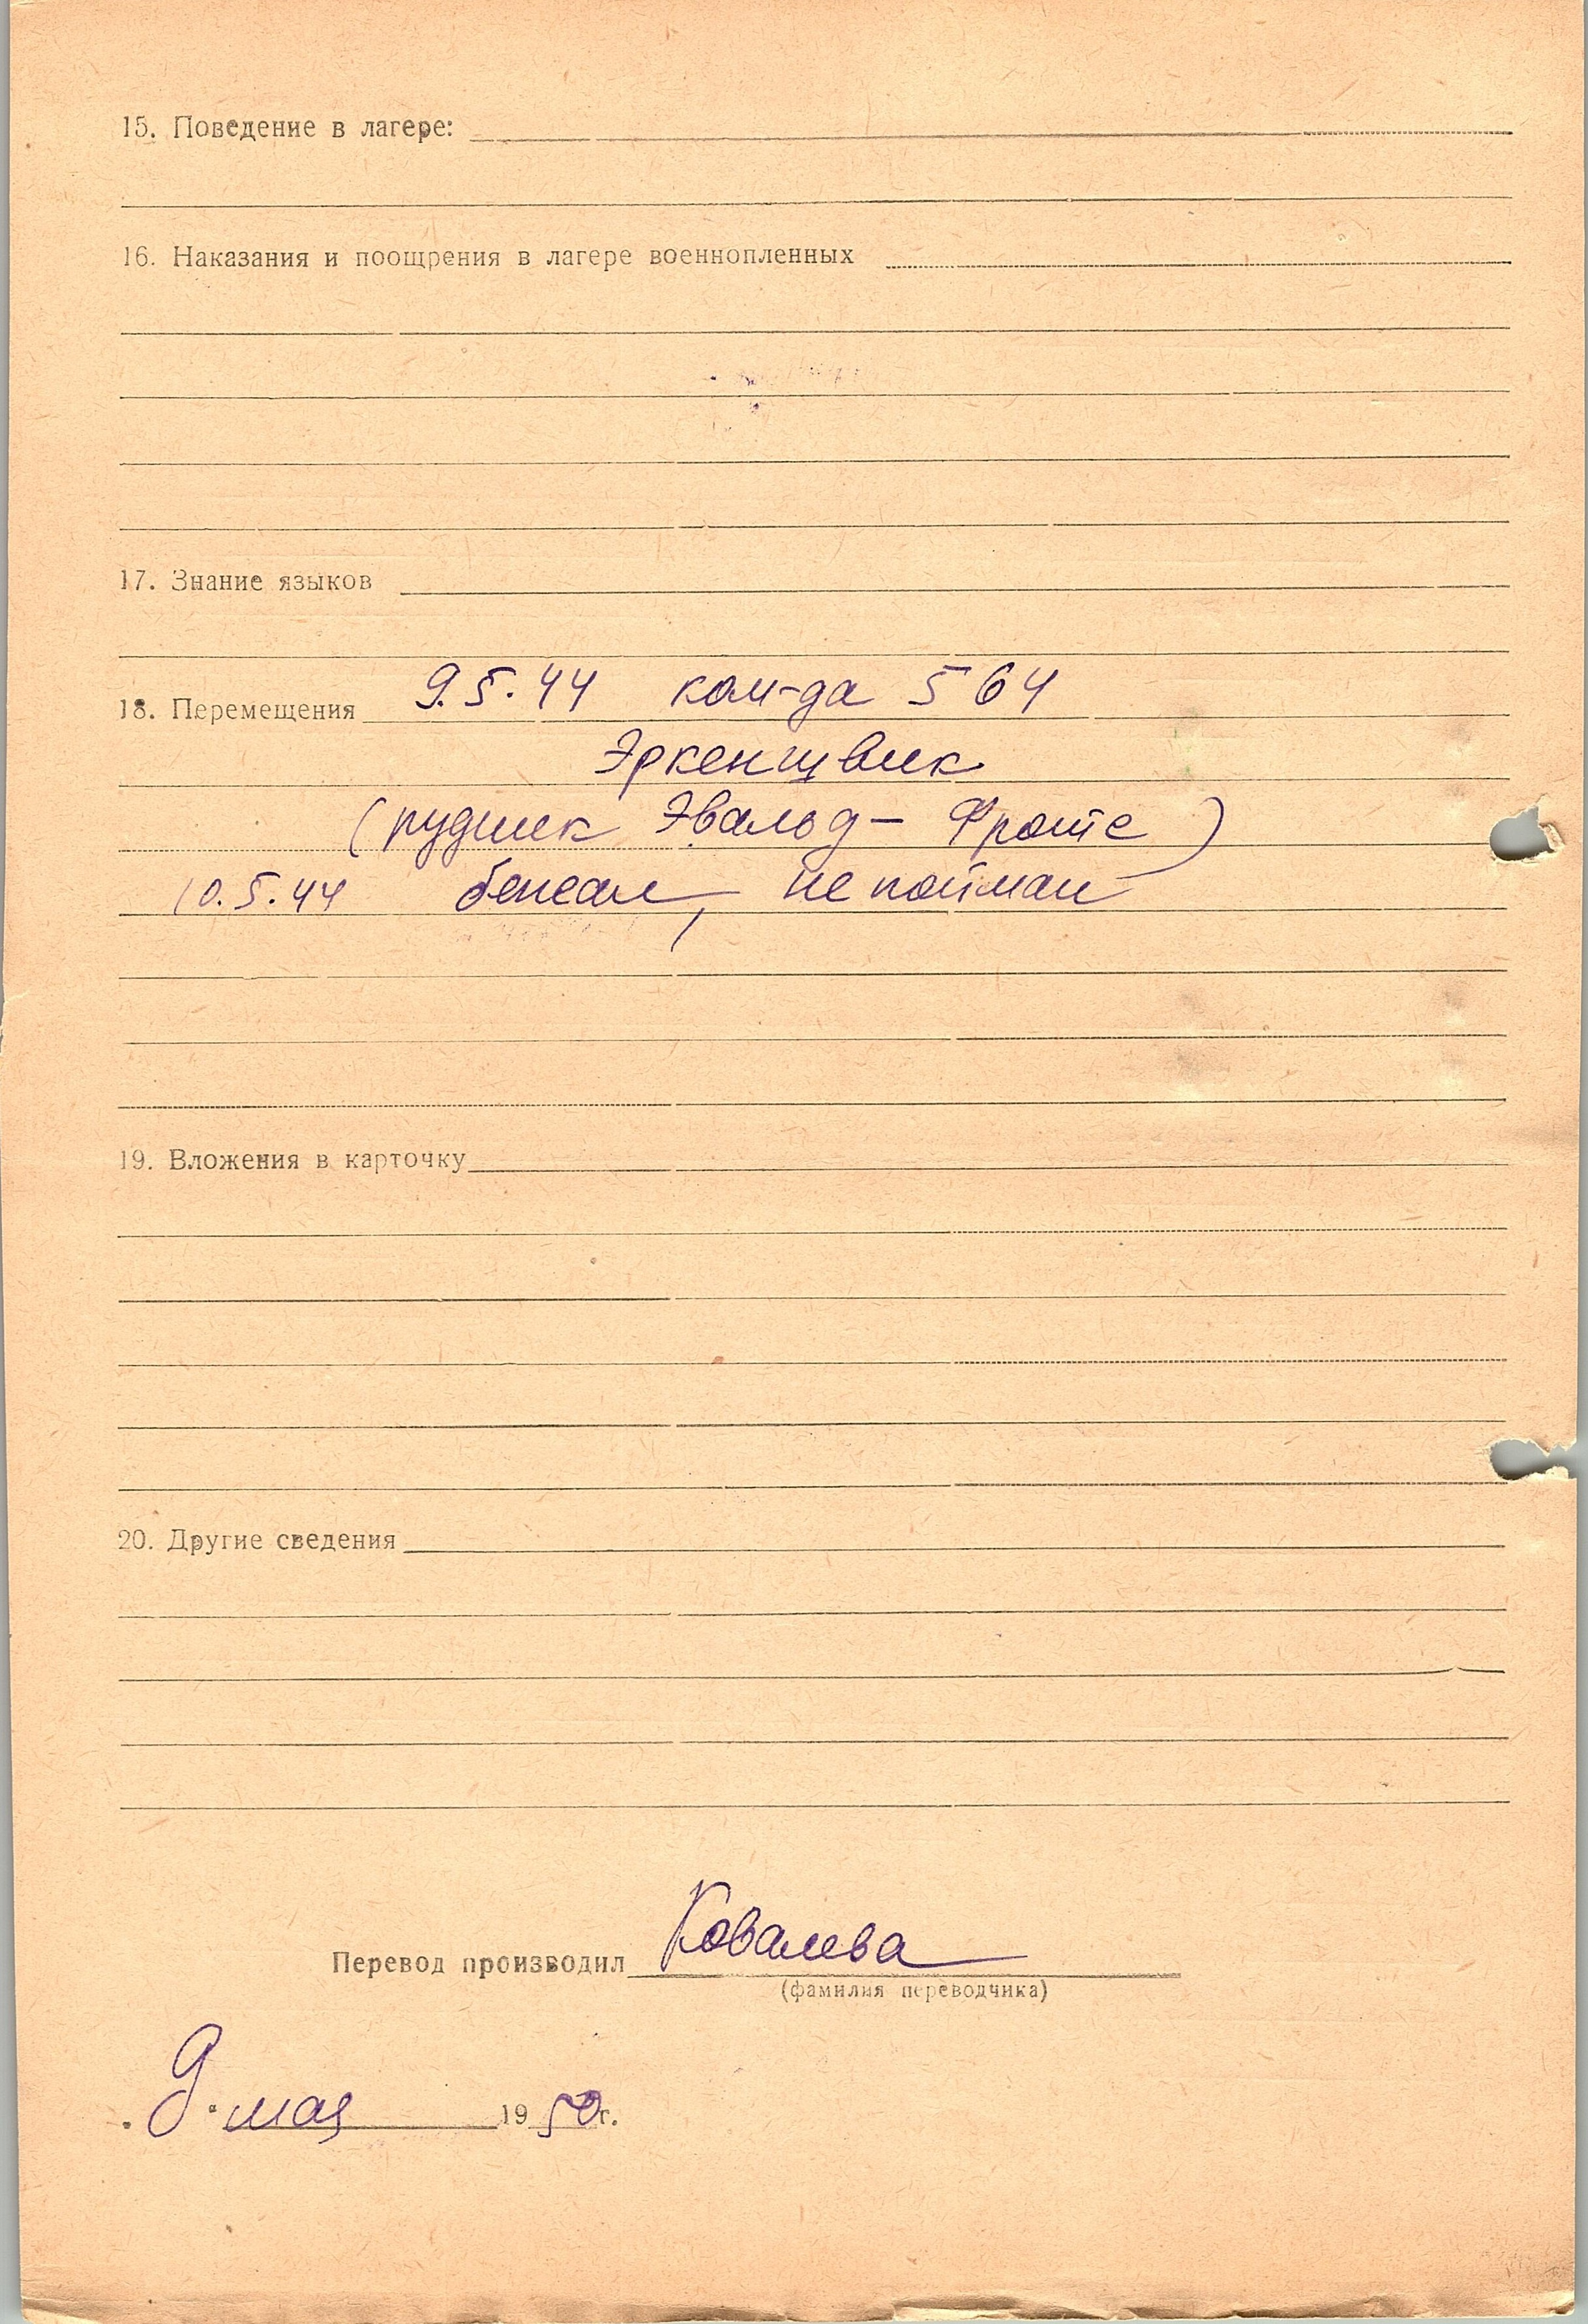 15. Поведение в лагере:
16. Наказания и поощрения в лагере военнопленных
17. Знание языков
18. Перемещения 9.5.44 ком-да 564
Эркеншвик
(рудник Эвальд - Фортсе)
10.5.44 бежал, не пойман
19. Вложения в карточку
20. Другие сведения
Перевод производил Ковалева
(фамилия переводчика)
„9" мая 1950г.